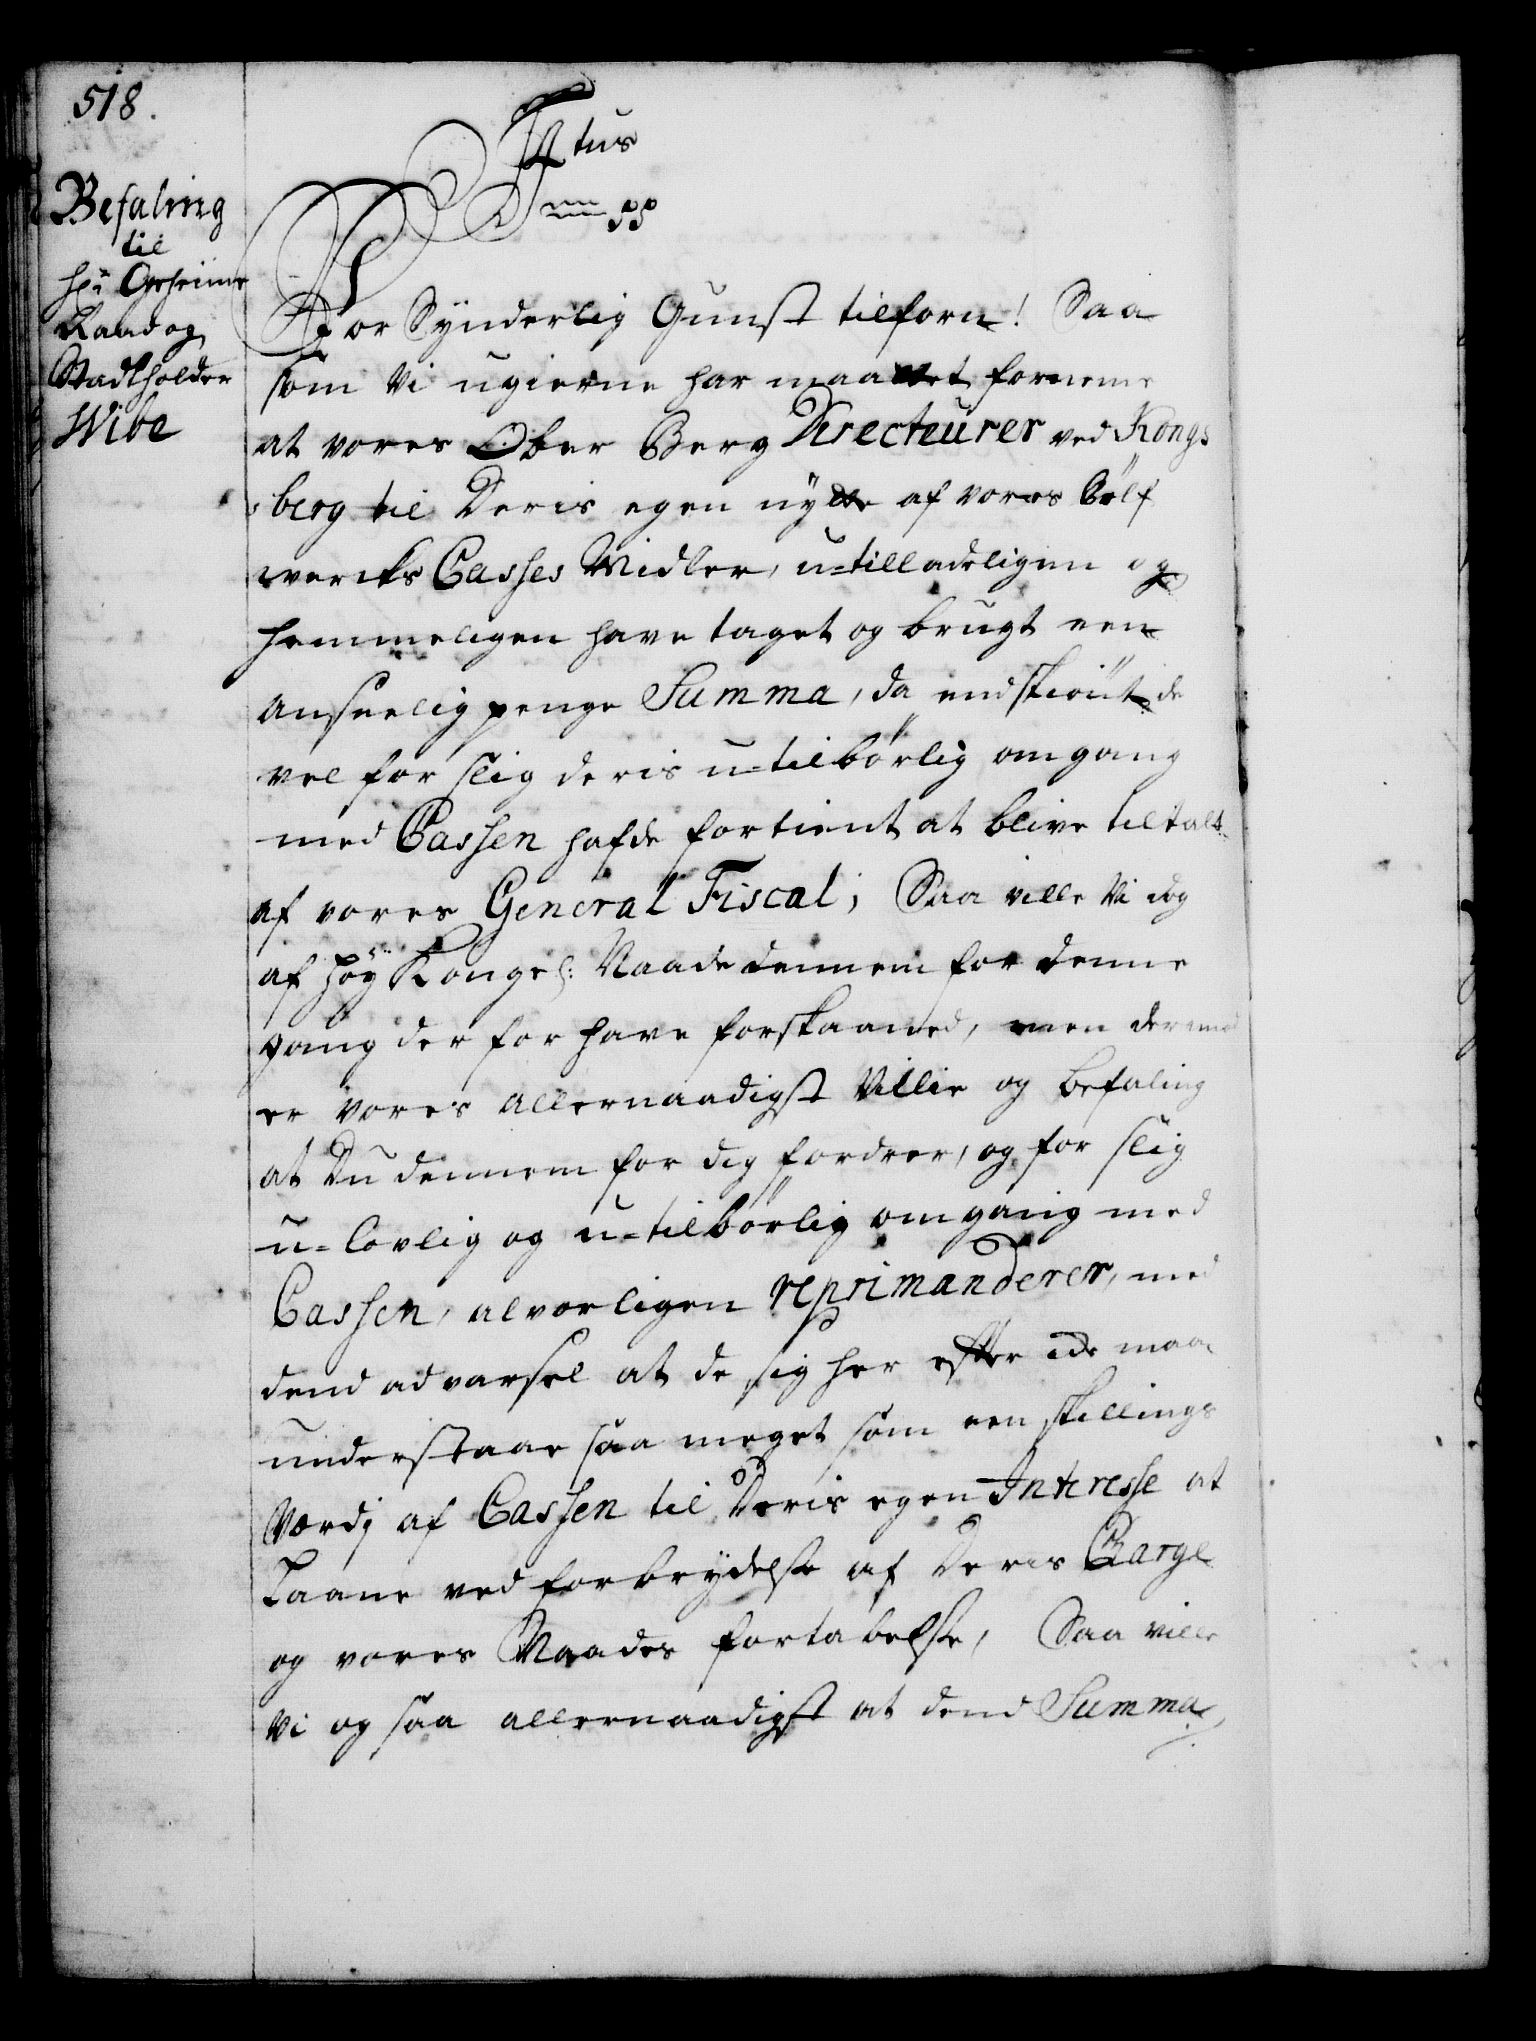 518.
Befaling
til
Hr Geheime
Raad og
Stadtholder
Wibe
F 4tus
For Synderlig Gunst tilforn! Saa
som Vi ugierne har maattet forneme
at vores Ober Berg Directeurer ved Kongs
berg til Deris egen nytte af vores Sølf
wercks Casses Midler, u-tilladeligen og
hemmeligen have taget og brugt een
anseelig penge Summa, da endskiönt de
vel for slig deris u-tilbörlig omgang
med Cassen hafde fortient at blive tiltalt
af vores General Fiscal; Saa ville Vi dog
af høy Kongel: Naade dennem for denne
gang der for have forskaaned, men dermod
er vores allernaadigst Villie og befaling
at Du dennem for dig fordrer, og for slig
u-lovlig og u-tilbörlig omgang med
Cassen, alvorligen reprimanderer, med
dend advarsel at de sig her efter icke maa
understaae saa meget som een skillings
Værdj af Cassen til Deris egen Interesse at
Laane ved forbrydelse af Deris Charge
og vores Naades fortabelse, Saa ville
Vi og saa allernaadigst at dend Summa,